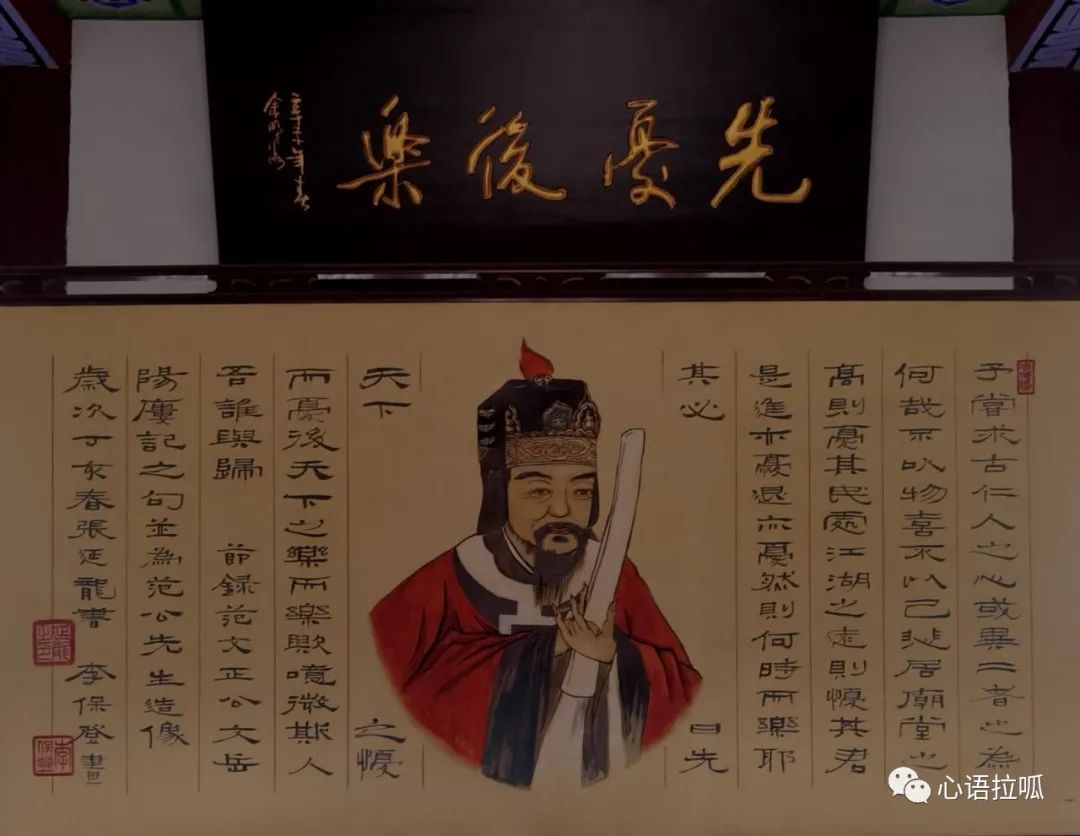 先憂後樂
予嘗求古仁人之心或異二者之為
何哉不以物喜不以己悲居廟堂之
高則憂其民處江湖之遠則懮其君
是進亦憂退亦憂然則何時而樂耶
其必曰先
天下之懮
而憂後天下之樂而樂歟噫微斯人
吾誰與歸 節錄范文正公文岳
陽廔記之句並為范公先生造像
歲次丁亥春張延龍書 李保登畫
心语拉呱